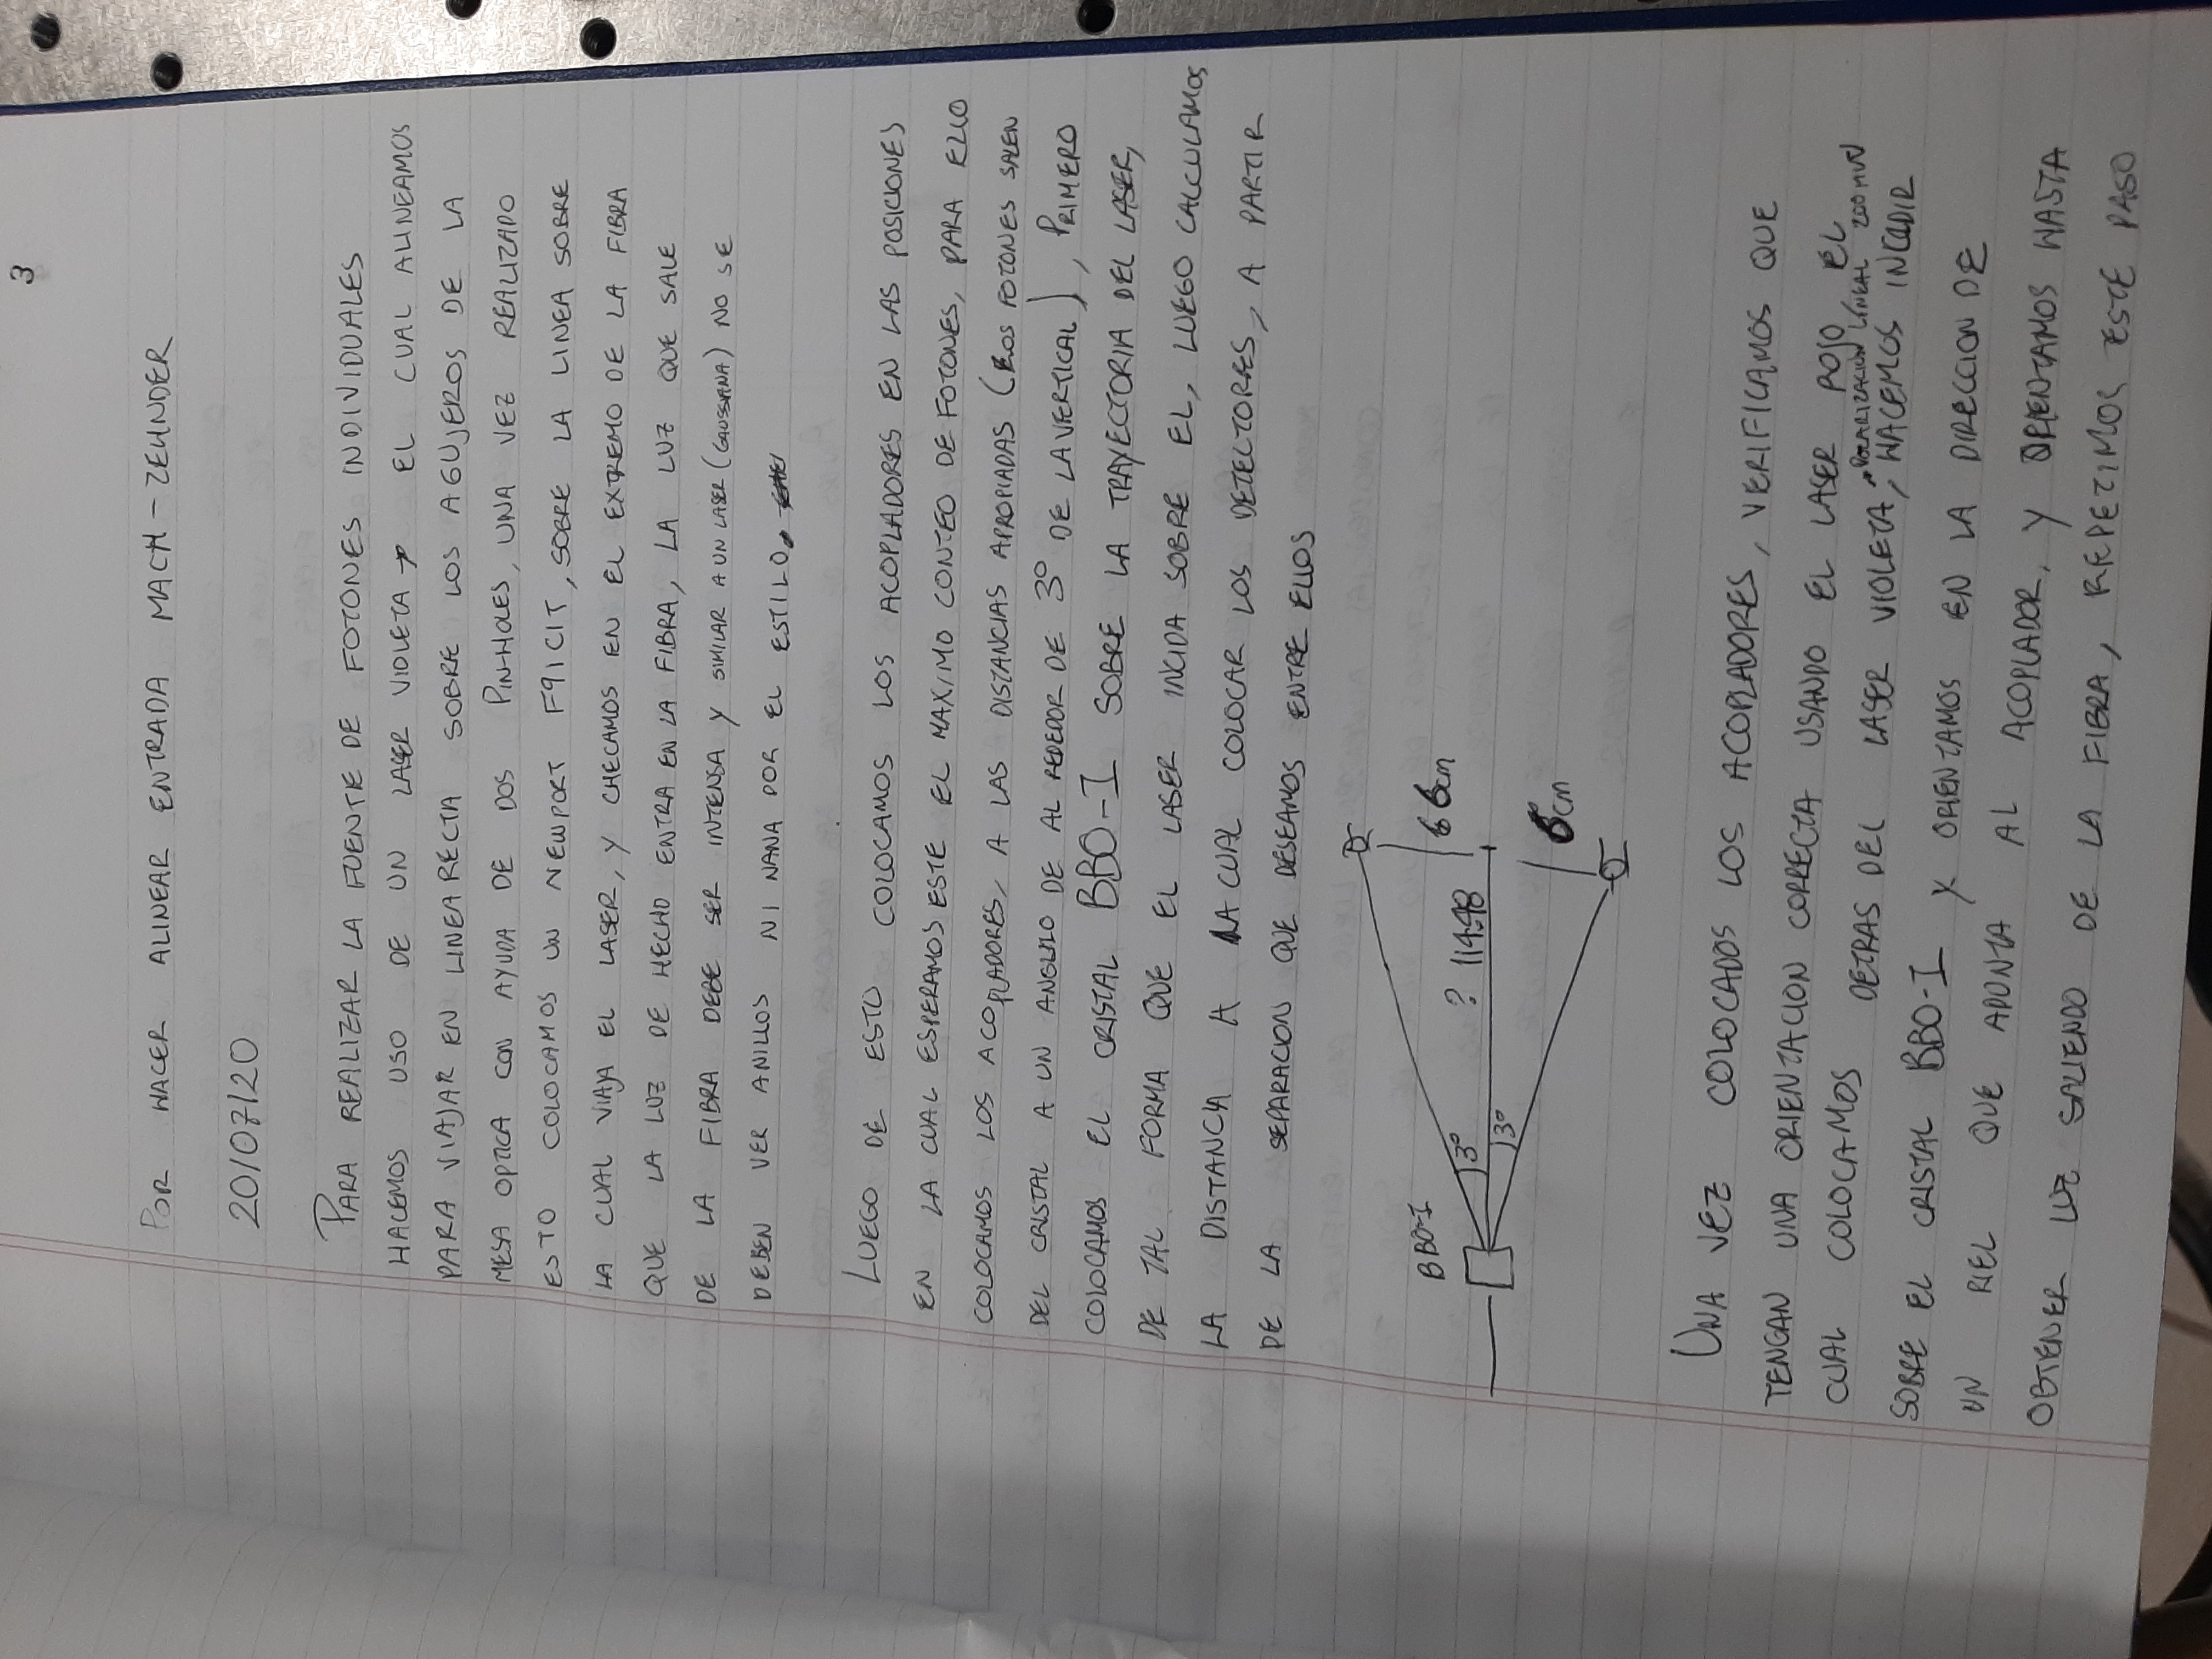 3
POR HACER ALINEAR ENTRADA MACH-ZEHNDER
20/07/20
PARA REALIZAR LA FUENTE DE FOTONES INDIVIDUALES
HACEMOS USO DE UN LASER VIOLETA → EL CUAL ALINEAMOS
PARA VIAJAR EN LINEA RECTA SOBRE LOS AGUJEROS DE LA
MESA OPTICA CON AYUDA DE DOS PIN-HOLES, UNA VEZ REALIZADO
ESTO COLOCAMOS UN NEWPORT F91C1T, SOBRE LA LINEA SOBRE
LA CUAL VIAJA EL LASER, Y CHECAMOS EN EL EXTREMO DE LA FIBRA
QUE LA LUZ DE HECHO ENTRA EN LA FIBRA, LA LUZ QUE SALE
DE LA FIBRA DEBE SER INTENSA Y SIMILAR A UN LASER (GAUSSIANA) NO SE
DEBEN VER ANILLOS NI NANA POR EL ESTILO.
LUEGO DE ESTO COLOCAMOS LOS ACOPLADORES EN LAS POSICIONES
EN LA CUAL ESPERAMOS ESTE EL MAXIMO CONTEO DE FOTONES, PARA ELLO
COLOCAMOS LOS ACOPLADORES, A LAS DISTANCIAS APROPIADAS (LOS FOTONES SALEN
DEL CRISTAL A UN ANGULO DE AL REDEDOR DE 3° DE LA VERTICAL), PRIMERO
COLOCAMOS EL CRISTAL BBO-I SOBRE LA TRAYECTORIA DEL LASER,
DE TAL FORMA QUE EL LASER INCIDA SOBRE EL, LUEGO CALCULAMOS
LA DISTANCIA A LA CUAL COLOCAR LOS DETECTORES, A PARTIR
DE LA SEPARACION QUE DESEAMOS ENTRE ELLOS
BBO-I
3°
? 114.48
6cm
3°
6cm
UNA VEZ COLOCADOS LOS ACOPLADORES, VERIFICAMOS QUE
TENGAN UNA ORIENTACION CORRECTA USANDO EL LASER ROJO, EL
CUAL COLOCAMOS DETRAS DEL LASER VIOLETA, HACEMOS INCIDIR
POLARIZACION LINEAL 200 MW
SOBRE EL CRISTAL BBO-I Y ORIENTAMOS EN LA DIRECCION DE
UN RIEL QUE APUNTA AL ACOPLADOR, Y ORIENTAMOS HASTA
OBTENER LUZ SALIENDO DE LA FIBRA, REPETIMOS ESTE PASO